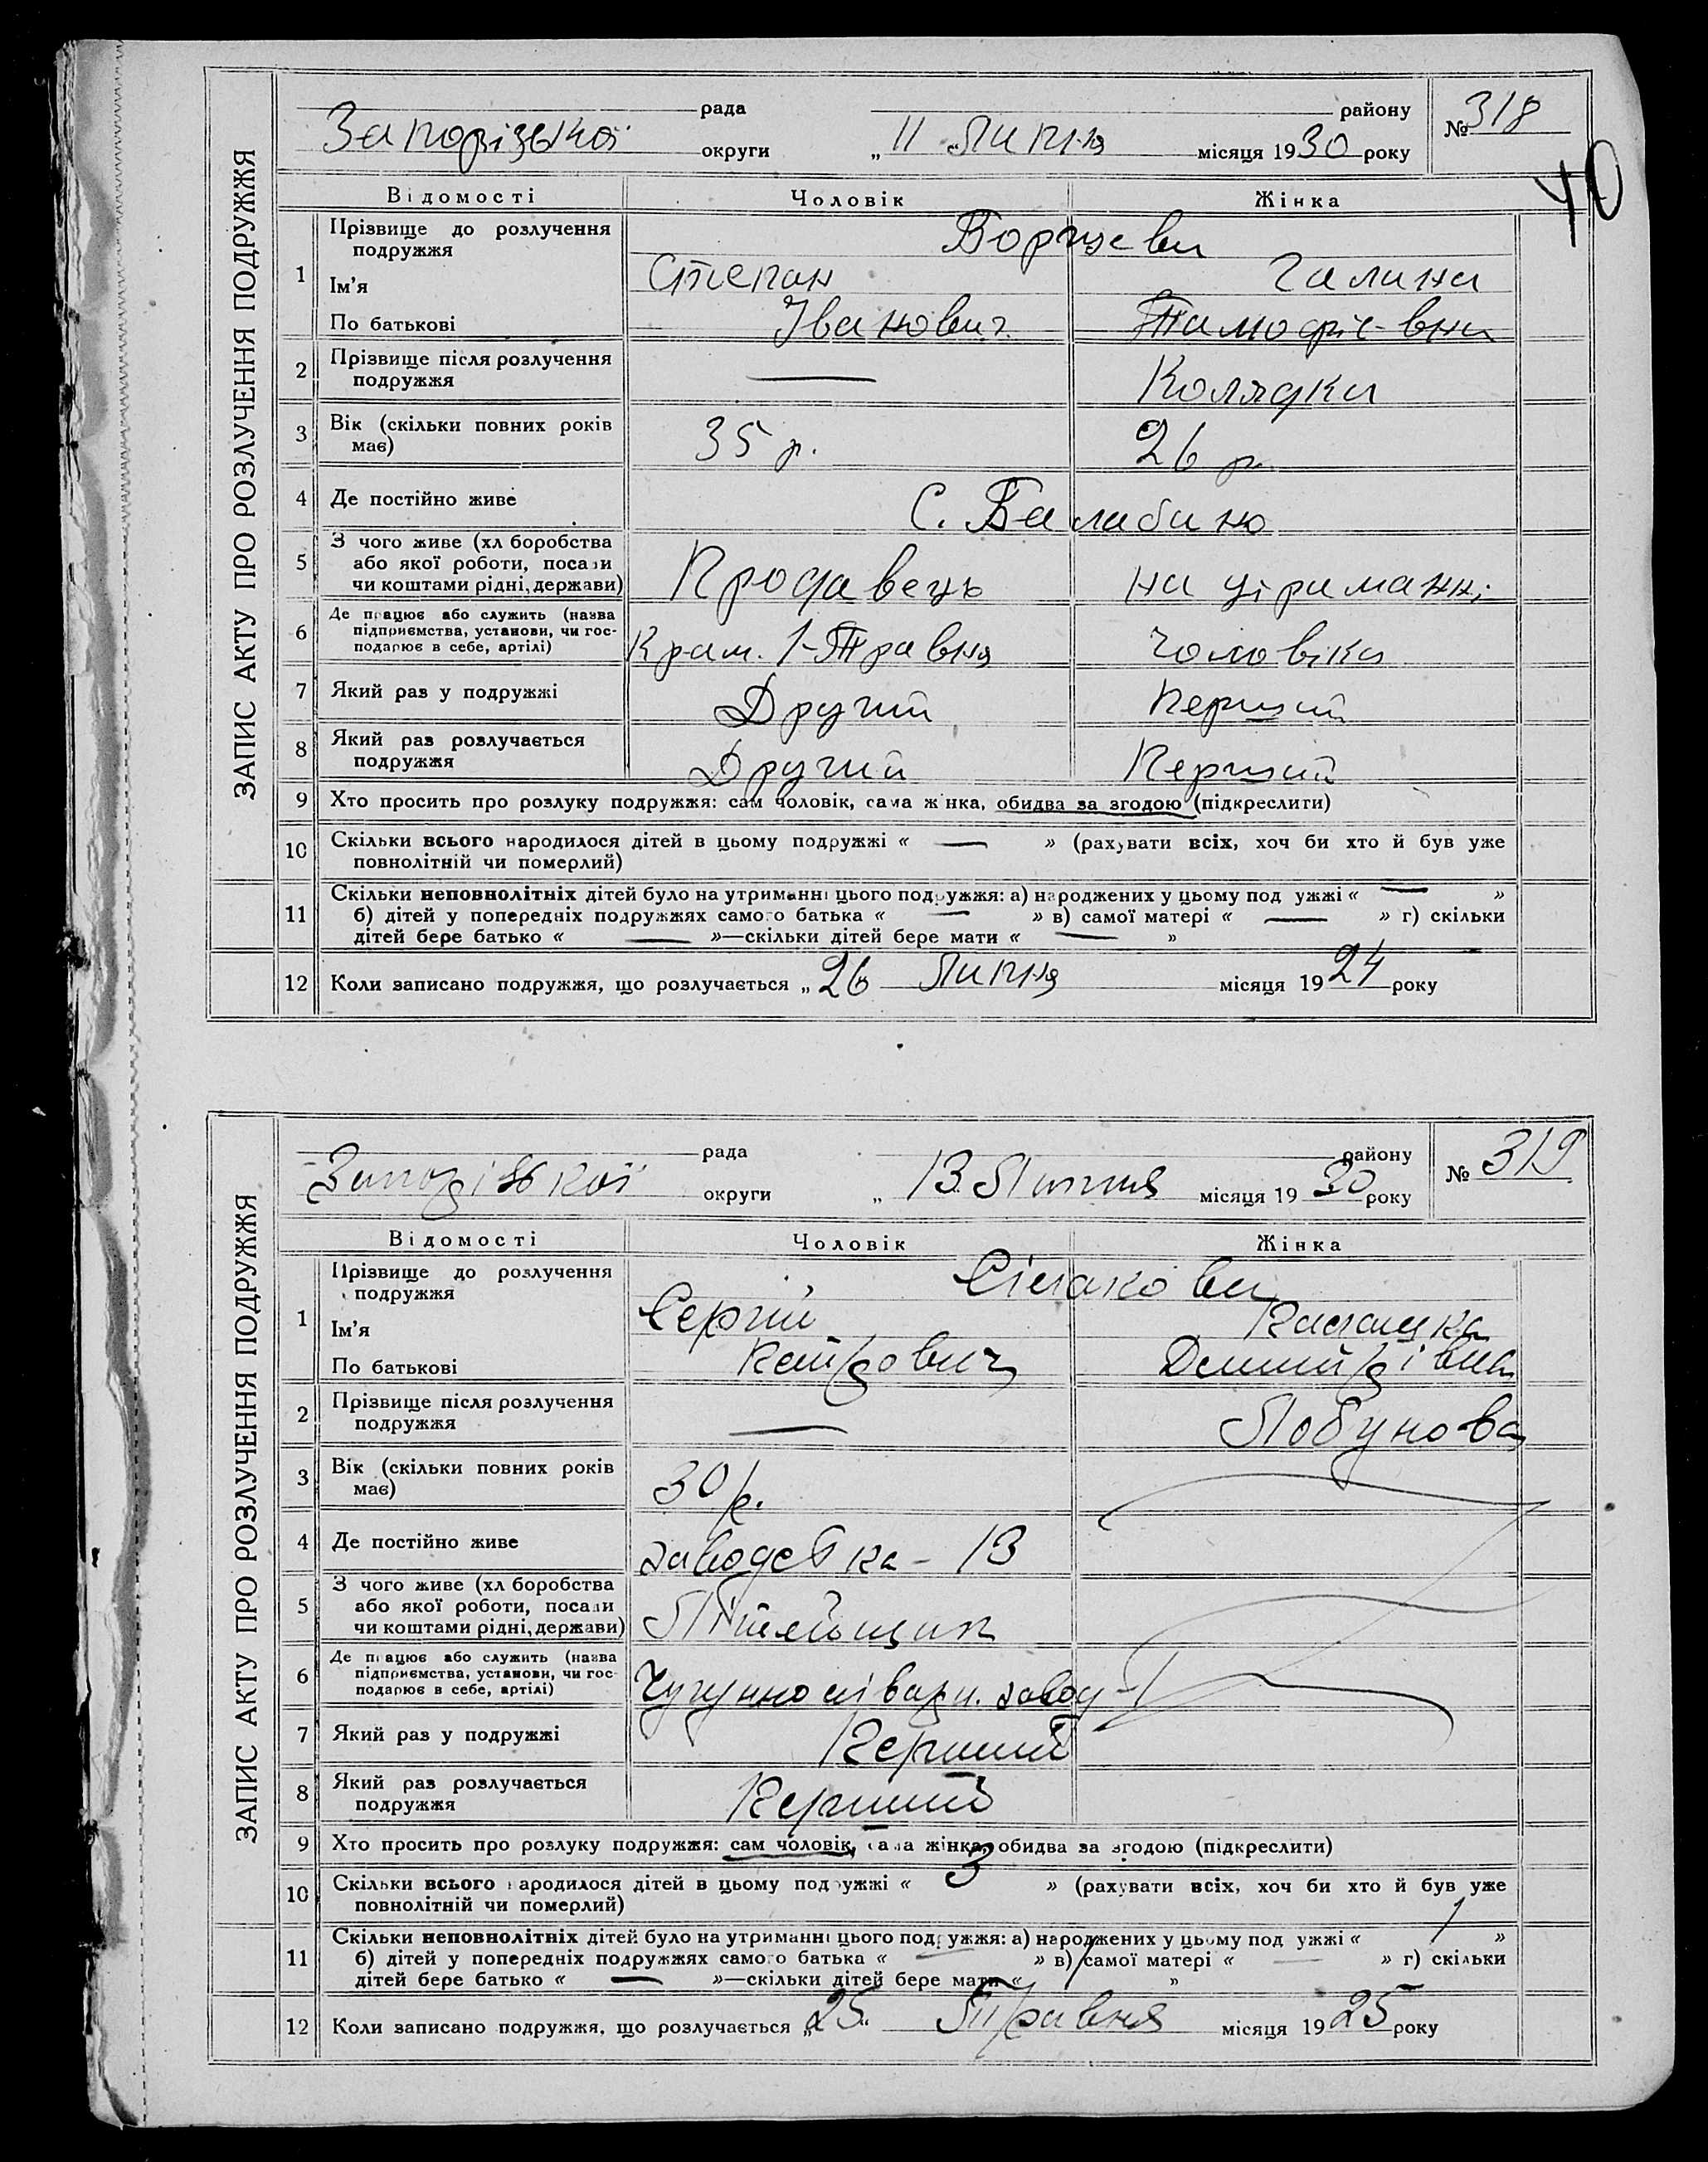 40
ЗАПИС АКТУ ПРО РОЗЛУЧЕННЯ ПОДРУЖЖЯ
рада району
Запорізької округи „ 11 „ Липня місяця 1930 року
№ 318
Відомості Чоловік Жінка
1 Прізвище до розлучення подружжя Борщеви
Ім'я Степан Галина
По батькові Іванович Тимофіє-вна
2 Прізвище після розлучення подружжя — Колядка
3 Вік (скільки повних років має) 35 р. 26 р.
4 Де постійно живе С. Балабино
5 З чого живе (хлiборобства або якої роботи, посади чи коштами рідні, держави) Продавець на утриманні
6 Де працює або служить (назва підприємства, установи, чи господарює в себе, артілі) Крам. 1-Травня чоловіка
7 Який раз у подружжі Другий Перший
8 Який раз розлучається подружжя Другий Перший
9 Хто просить про розлуку подружжя: сам чоловік, сама жінка, обидва за згодою (підкреслити)
10 Скільки всього народилося дітей в цьому подружжі « — » (рахувати всіх, хоч би хто й був уже
повнолітній чи померлий)
11 Скільки неповнолітніх дітей було на утриманні цього подружжя: а) народжених у цьому подружжі « — »
б) дітей у попередніх подружжях самого батька « — » в) самої матері « — » г) скільки
дітей бере батько « — »—скільки дітей бере мати « — »
12 Коли записано подружжя, що розлучається „ 26 Липня місяця 1924 року
ЗАПИС АКТУ ПРО РОЗЛУЧЕННЯ ПОДРУЖЖЯ
рада району
Запорізької округи „ 13 Липня місяця 1930 року
№ 319
Відомості Чоловік Жінка
1 Прізвище до розлучення подружжя
Ім'я Сергій
По батькові Дмитрівна
2 Прізвище після розлучення подружжя — Лобунова
3 Вік (скільки повних років має) 30 р.
4 Де постійно живе Заводська - 13
5 З чого живе (хлiборобства або якої роботи, посади чи коштами рідні, держави) Літейщик
6 Де працює або служить (назва підприємства, установи, чи господарює в себе, артілі) завод
7 Який раз у подружжі Перший
8 Який раз розлучається подружжя Перший
9 Хто просить про розлуку подружжя: сам чоловік, сама жінка, обидва за згодою (підкреслити)
10 Скільки всього народилося дітей в цьому подружжі « 3 » (рахувати всіх, хоч би хто й був уже
повнолітній чи померлий)
11 Скільки неповнолітніх дітей було на утриманні цього подружжя: а) народжених у цьому подружжі « 1 »
б) дітей у попередніх подружжях самого батька « — » в) самої матері « — » г) скільки
дітей бере батько « — »—скільки дітей бере мати « 1 »
12 Коли записано подружжя, що розлучається „ 25 „ Травня місяця 1925 року